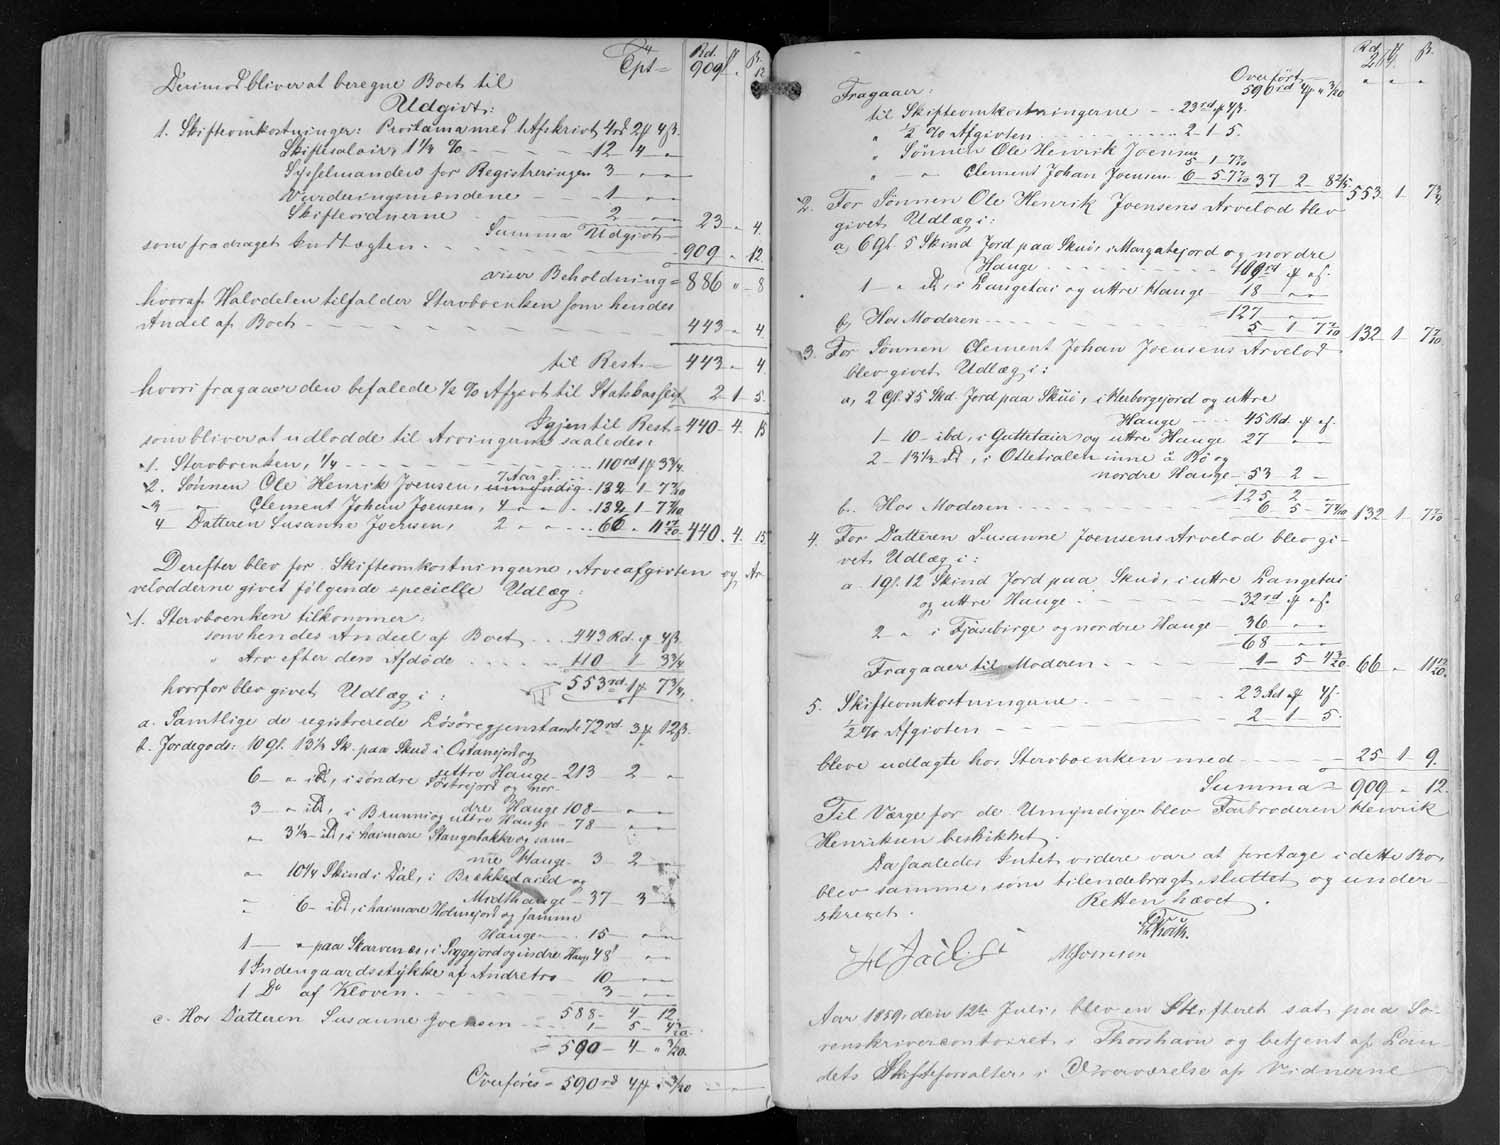 Rd. ₰ β.
Tpt = 909 " 12
Derimod bliver at beregne Boet til
Udgivt:
1. Skifteomkostninger: Proclama med 1 Afskrivt 4rd 2₰ 4β.
Skiftesalair, 1¼ % - - - 12 4 "
Sysselmanden for Registreringen 3 - "
Vurderingsmændene - - 1 - "
Skiftevidnerne - - 2 - "
Summa Udgivt = 23 " 4.
som fradraget Indtægten - - - - 909 " 12.
viser Beholdning = 886 " 8
hvoraf Halvdelen tilfalder Stervboenken som hendes
Andel af Boet - - - - 443 " 4.
til Rest = 443 " 4
hvori fragaaer den befalede ½ % Afgivt til Statskassen 2 1 5.
Igjen til Rest = 440 4. 15
som bliver at udlodde til Arvingerne saaledes:
1. Stervboenken, ¼ - - - - 110rd 1₰ 3¾.
7 Aar gl.
2. Sønnen Ole Henrik Joensen, umyndig - 132 1 7 7/10
3 " Clement Johan Joensen, 4 " " - 132 1 7 7/10
4 Datteren Susanne Joensen, 2 " " - 66 " 11 17/20 440. 4. 15
Derefter blev for Skifteomkostningerne, Arveafgivten og Ar-
velodderne givet følgende specielle Udlæg:
1. Stervboenken tilkommer:
som hendes Andeel af Boet - - 443 Rd. " ₰ 4β.
" Arv efter den Afdøde - - - 110 1 3¾
553rd 1₰ 7¾.
hvorfor blev givet Udlæg i:
a. Samtlige de registrerede Løsøregjenstande 72rd 3₰ 12β.
b. Jordegods: 10 Gl. 13⅓ Sk. paa Skuø i Ostansjord og
uttre Hauge - 213 2 "
6 - " ibd, i søndre Tostrejord og nor-
dre Hauge 108 - "
3 - " ibD, i Brunni og uttre Hauge - 78 - "
" 3⅓ - ibD, i haimare Stangestakke og sam-
me Hauge - 3 2 -
" 10¼ Skind i Dal, i Brekkedaild og
Midthauge - 37 3 -
" 6 - ibD, i haimare Holmejord og samme
Hauge - 15 - "
1 - " paa Skarvenæs, i Siggejord og indre Hauge 48 - "
1 Indengaardsstykke af Andretro - 10 - "
1 Do af Kloven - - - 3 - "
588 - 4 - 12
c. Hos Datteren Susanne Joensen - - 1 - 5 - 4 3/20
= 590 - 4 - " 3/20.
Overføres = 590rd 4₰ " 3/20
Rd. ₰ β.
267.
Overført - " " "
590rd 4₰ " 3/20
Fragaaer:
til Skifteomkostningerne - - 23rd " ₰ 4β.
" ½ % Afgivten - - - 2 - 1 - 5.
" Sønnen Ole Henrik Joensen 5 1 7 7/10
" - " Clement Johan Joensen 6 - 5 7 7/10 37 2 - 8 2/5. 553 1 7¾
2. For Sønnen Ole Henrik Joensens Arvelod blev
givet Udlæg i:
a, 6 Gl. 5 Skind Jord paa Skuø, i Morgatejord og nordre
Hauge - - - 109rd " ₰ " β.
1 - " ibD, i Langetai og uttre Hauge - 18 - "
= 127 - -
b, Hos Moderen - - - - 5 1 7 7/10 132 1 7 7/10
3. For Sønnen Clement Johan Joensens Arvelod
blev givet Udlæg i:
a, 2 Gl. 15 Skd. Jord paa Skuø, i Nerborgejord og uttre
Hauge - - 45 Rd. " ₰ " β.
1 - 10 - ibd, i Guttetaier og uttre Hauge 27 - "
2 - 13⅓ ibD, i Ottetialen inne á Bø og
nordre Hauge - 53 2 -
= 125 2 -
b. Hos Moderen - - - - 6 5 - 7 7/10 132 1 7 7/10
4. For Datteren Susanne Joensens Arvelod blev gi-
vet Udlæg i:
a. 1 Gl. 12 Skind Jord paa Skuø, i uttre Langetai
og uttre Hauge - - - 32rd " ₰ " β.
2 " i Fjasebirge og nordre Hauge - 36 - "
= 68 - -
Fragaaer til Moderen - - - - 1 - 5 - 4 3/20 66 " 11 17/20.
5. Skifteomkostningerne - - - 23 Rd " ₰ 4β.
½ % Afgivten - - - 2 1 5.
bleve udlagte hos Stervboenken med - - - 25 1 9.
Summa = 909 " 12.
Til Værge for de Umyndige blev Farbroderen Henrik
Henriksen beskikket.
Da saaledes Intet videre var at foretage i dette Bo,
blev samme, som tilendebragt, sluttet og under-
skrevet. Retten hævet.
MJoensen
Aar 1859, den 12te Juli, blev en Skifteret sat paa So-
renskrivercontoiret i Thorshavn og betjent af Lan-
dets Skifteforvalter, i Overværelse af Vidnerne